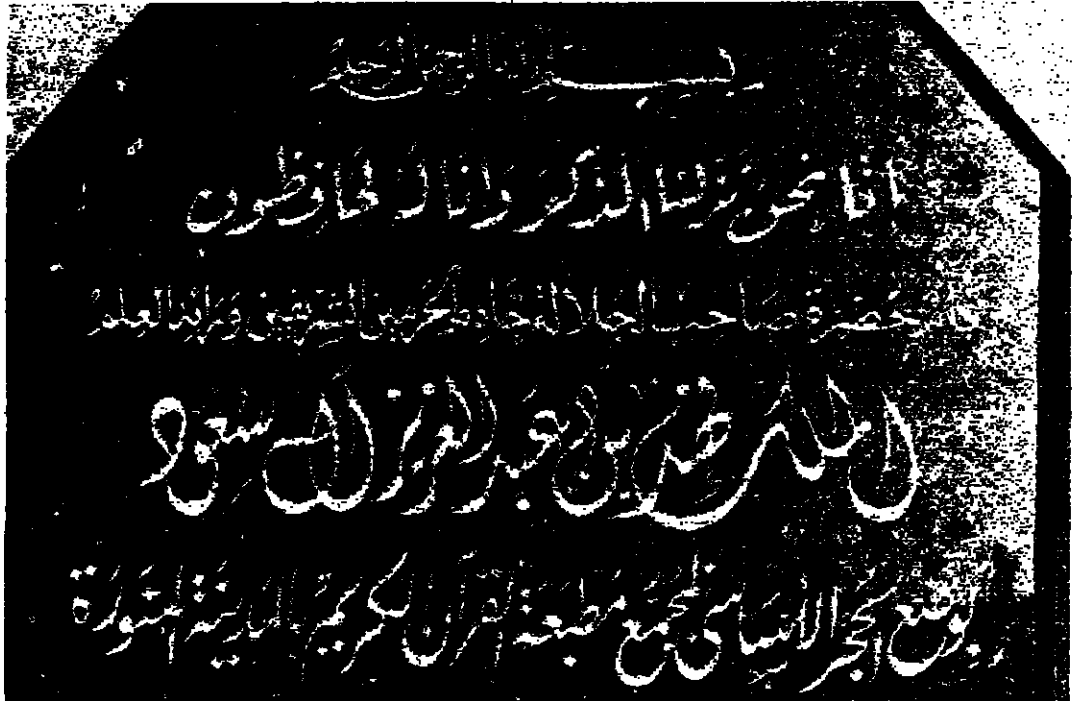 بسم الله الرحمن الرحيم
انا نحن نزلنا الذكر وانا له لحافظون
حضرة صاحب الجلالة خادم الحرمين الشريفين ورائد العلم
الملك فهد بن عبد العزيز آل سعود
بوضع الحجر الاساسى لمجمع طباعة القرآن الكريم بالمدينة المنورة